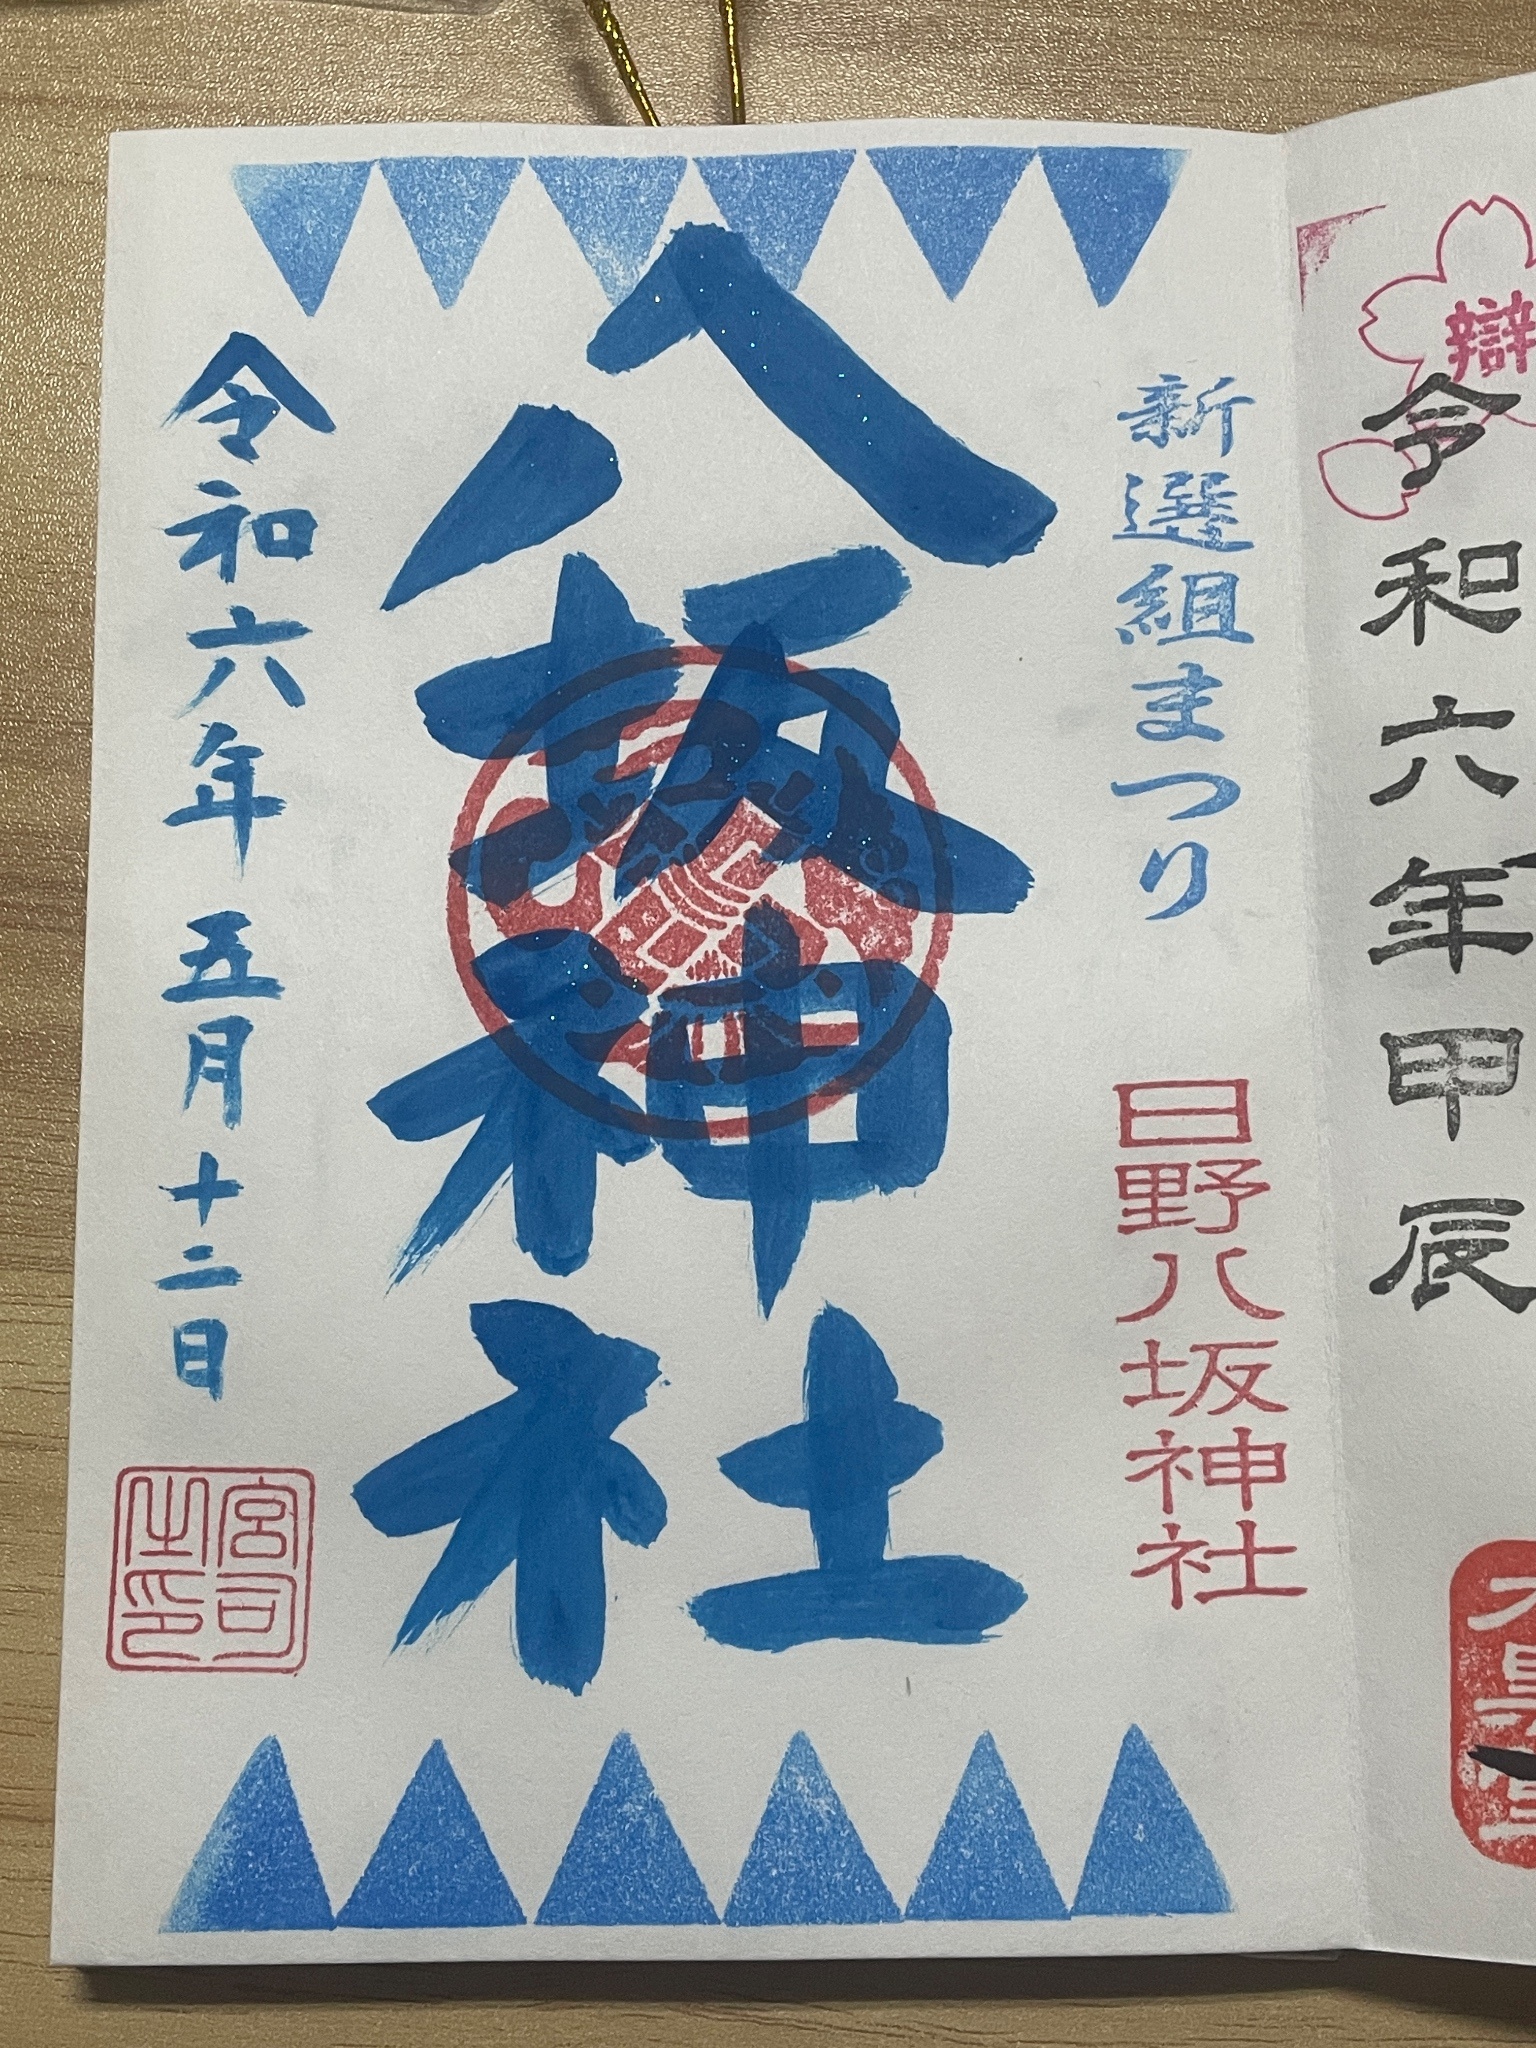 辯
令和六年甲辰
新選組まつり
日野八坂神社
八坂神社
令和六年 五月十二日
宮司之印